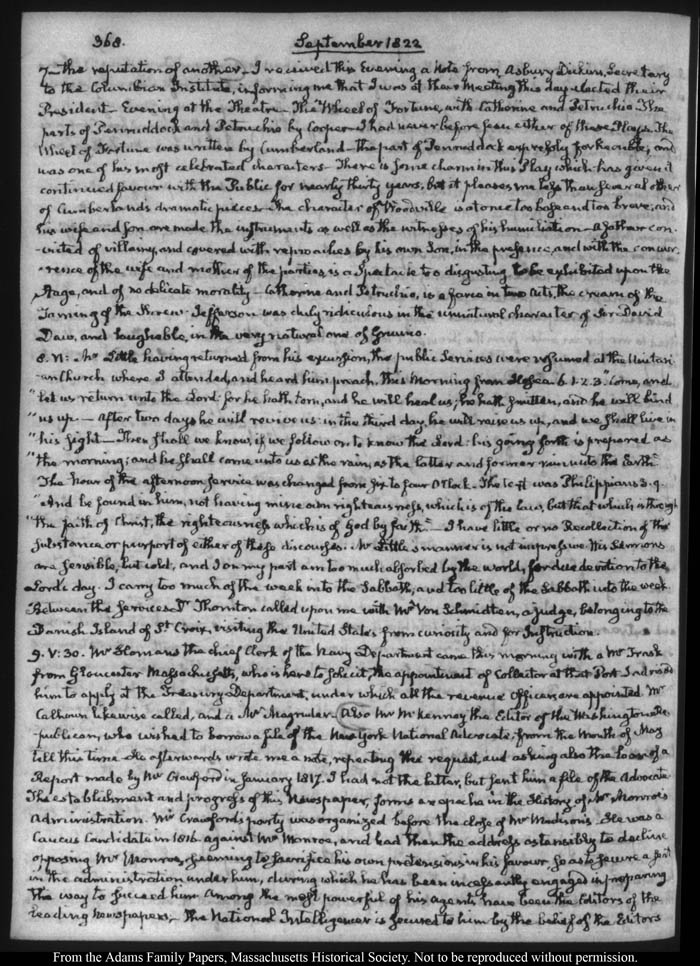 368.
September 1822
7. the reputation of another. I received this Evening a Note from Asbury Dickins, Secretary
to the Columbian Institute, informing me that I was at their Meeting this day elected their
President. Evening at the Theatre. The Wheel of Fortune, with Catherine and Petruchio. The
parts of Penruddock and Petruchio by Cooper. I had never before seen either of these Plays. The
Wheel of Fortune was written by Cumberland. The part of Penruddock expressly for Kemble, and
was one of his most celebrated characters. There is some charm in this Play which has given it
continued favour with the Public for nearly thirty years, but it pleases me less than several other
of Cumberland's dramatic pieces. The character of Woodville is at once too base and too brave; and
his wife and son are made the instruments as well as the witnesses of his humiliation. A father con-
-victed of villany, and covered with reproaches by his own Son, in the presence, and with the concur-
-rence of the wife and mother of the parties is a Spectacle too disgusting to be exhibited upon the
Stage, and of no delicate morality. Catherine and Petruchio, is a farce in two acts, the cream of the
Taming of the Shrew. Jefferson was duly ridiculous in the unnatural character of Sir David
Daw, and laughable, in the very natural one of Grumio.
8. VI: Mr Little having returned from his excursion, the public Services were resumed at the Unitari-
-an Church where I attended, and heard him preach, this Morning from Hosea. 6. 1. 2. 3. "Come, and
"let us return unto the Lord: for he hath torn, and he will heal us; he hath smitten, and he will bind
"us up. — After two days he will revive us: in the third day, he will raise us up, and we shall live in
"his sight. — Then shall we know, if we follow on to know the Lord: his going forth is prepared as
"the morning; and he shall come unto us as the rain, as the latter and former rain unto the Earth."
The hour of the afternoon service was changed from six to four O'Clock. The text was Philippians 3. 9.
"And be found in him, not having mine own righteousness, which is of the law, but that which is through
"the faith of Christ, the righteousness which is of God by faith." — I have little or no Recollection of the
substance or purport of either of these discourses. Mr Little's manner is not impressive. His Sermons
are sensible, but cold; and I on my part am too much absorbed by the world, for due devotion to the
Lord's day. I carry too much of the week into the Sabbath, and too little of the Sabbath into the week.
Between the services Dr Thornton called upon me with Mr Von Schmidten, a judge, belonging to the
Danish Island of St Croix, visiting the United States from curiosity and for Instruction.
9. V: 30. Mr Homans the chief Clerk of the Navy Department came this morning with a Mr Trask
from Gloucester Massachusetts, who is here to solicit, the appointment of Collector at that Port. I advised
him to apply at the Treasury Department, under which all the revenue Officers are appointed. Mr
Calhoun likewise called, and a Mr Magruder. Also Mr McKenney the Editor of the Washington Re-
-publican, who wished to borrow a file of the New York National Advocate, from the Month of May
till this time. He afterwards wrote me a note, repeating the request, and asking also the loan of a
Report made by Mr Crawford in January 1817. I had not the latter, but sent him a file of the Advocate.
The establishment and progress of this Newspaper, forms an epocha in the History of Mr Monroe's
Administration. Mr Crawford's party was organized before the close of Mr Madison's. He was a
Caucus Candidate in 1816. against Mr Monroe, and had then the address ostensibly to decline
opposing Mr Monroe, seeming to sacrifice his own pretensions in his favour so as to secure a seat
in the administration under him, during which he has been incessantly engaged in preparing
the way to succeed him. Among the most powerful of his agents have been the Editors of the
leading Newspapers. The National Intelligencer is secured to him by the belief of the Editors
From the Adams Family Papers, Massachusetts Historical Society. Not to be reproduced without permission.